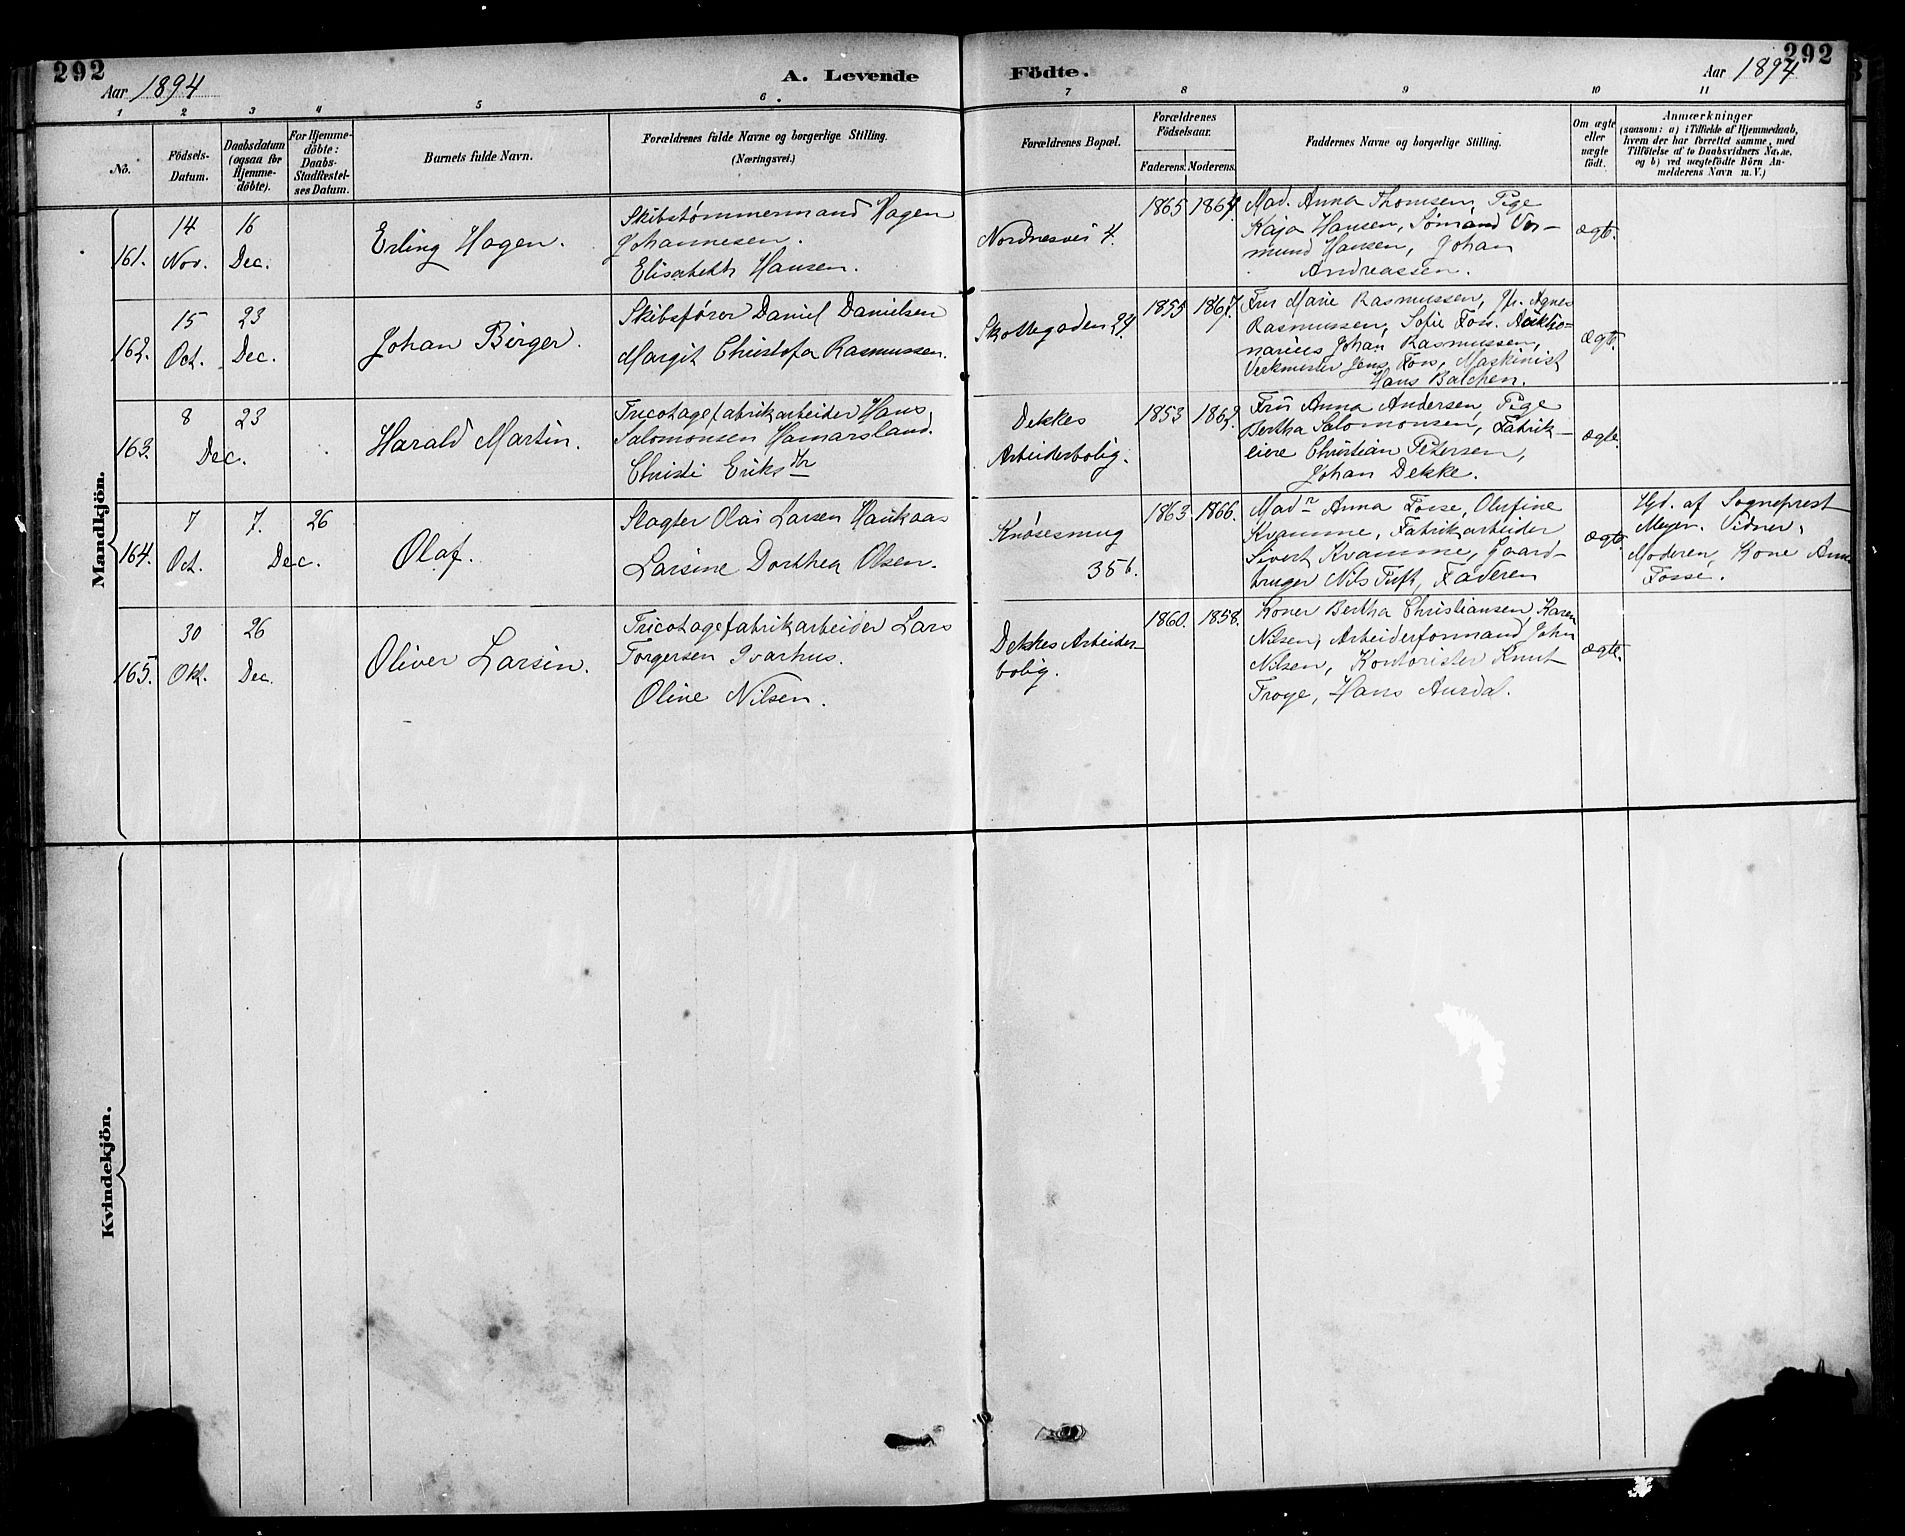 292
Aar 1894
A. Levende
Födte.
Aar 1894
292
1 2 3 4 5 6. 7 8 9 10 11
No.
Födsels-
Datum.
Daabsdatum
(ogsaa for
Hjemme-
döbte).
For Hjemme-
döbte:
Daabs-
Stadfæstel-
ses Datum.
Barnets fulde Navn.
Forældrenes fulde Navne og borgerlige Stilling.
(Næringsvei.)
Forældrenes Bopæl.
Forældrenes
Födselsaar.
Faderens. Moderens.
Faddernes Navne og borgerlige Stilling.
Om ægte
eller
uægte
født.
Anmærkninger
(saasom: a) i Tilfælde af Hjemmedaab,
hvem der har forrettet samme, med
Tilföielse af to Daabsvidners Navne,
og b) ved uægtefödte Börn An-
melderens Navn m. V.)
Mandkjön.
161.
14
Nov.
16
Dec.
Erling Hagen.
Skibstømmermand Hagen
Johannesen.
Elisabeth Hansen.
Nordnesvei 4.
1865 1864.
Mad. Anna Thomsen, Pige
Kaja Hansen, Sømand Ver-
mund Hansen, Johan
Andreassen.
ægte.
162.
15
Oct.
23
Dec.
Johan Birger.
Skibsfører Daniel Danielsen
Margit Christofa Rasmussen.
Skottegaden 24.
1855 1867.
Fru Marie Rasmussen, Jfr. Agnes
Rasmussen, Sofie Foss. Auktio-
narius Johan Rasmussen,
Verkmester Jens Foss, Maskinist
Hans Balchen.
ægte.
163.
8
23
Dec.
Harald Martin.
Tricotagefabrikarbeider Hans
Salomonsen Hamarsland.
Christi Eriksdtr
Dekkes
Arbeiderbolig.
1853 1862.
Fru Anna Andersen, Pige
Bertha Salomonsen, Fabrik-
eiere Christian Petersen,
Johan Dekke.
ægte.
164.
7
Oct.
7. 26
Dec.
Olaf.
Slagter Olai Larsen Haukaas
Larsine Dorthea Olsen.
Knøsesmug
35 b.
1863 1866.
Madm Anna Fosse, Olufine
Kvamme, Fabrikarbeider
Sivert Kvamme, Gaard-
bruger Nils Tuft, Faderen
ægte
Hjd. af Sogneprest
Meyer. Vidner.
Moderen, Kone Anna
Fosse.
165.
30
Okt.
26
Dec.
Oliver Larsin.
Tricotagefabrikarbeider Lars
Torgersen Ivarhus.
Oline Nilsen.
Dekkes Arbeider-
bolig.
1860. 1858.
Koner Bertha Christiansen, Karen
Nilsen, Arbeiderformand John
Nilsen, Kontorister Knut
Troye, Hans Aurdal.
ægte.
Kvindekjön.